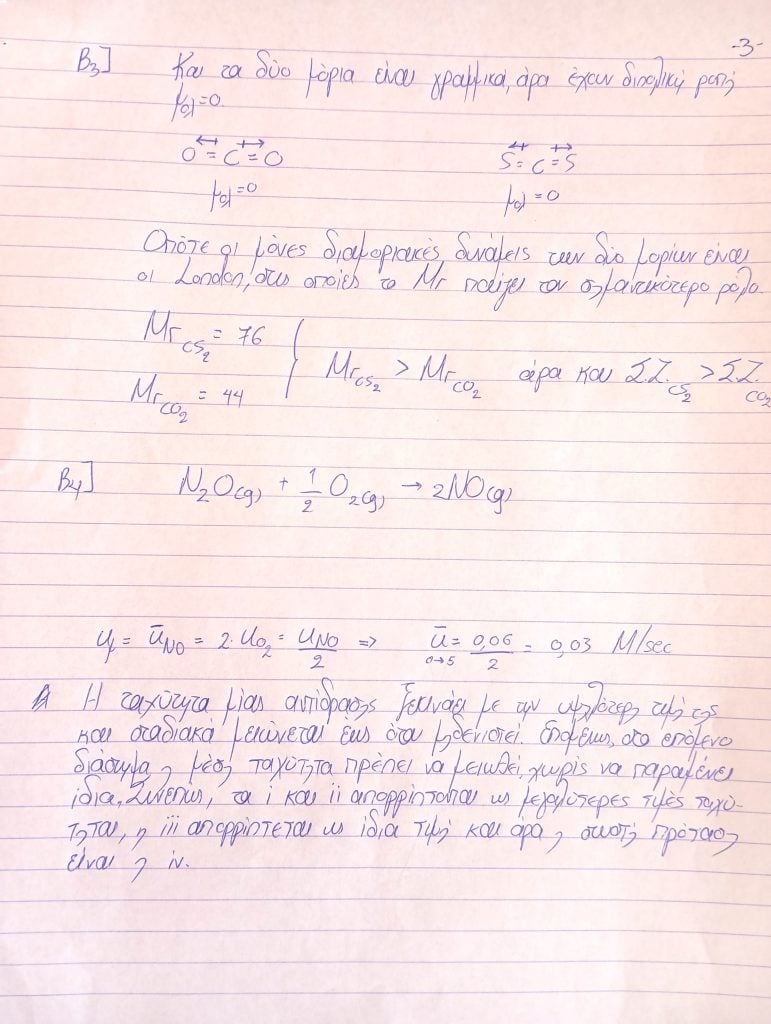 -3-
Β3] Και τα δύο μόρια είναι γραμμικά, άρα έχουν διπολική ροπή
μολ=0
O = C = O S = C = S
μολ=0 μολ=0
Οπότε οι μόνες διαμοριακές δυνάμεις των δύο μορίων είναι
οι London, στις οποίες το Mr παίζει τον σημαντικότερο ρόλο.
MrCS2 = 76
MrCS2 > MrCO2 άρα και Σ.Ζ.CS2 > Σ.Ζ.CO2
MrCO2 = 44
Β4] N2O(g) + 1/2 O2(g) → 2NO(g)
υ = ῡNO = 2·υO2 = υNO/2 => ῡ0→5 = 0,06/2 = 0,03 M/sec
Η ταχύτητα μίας αντίδρασης ξεκινάει με την υψηλότερη τιμή της
και σταδιακά μειώνεται έως ότου μηδενιστεί. Επομένως, στο επόμενο
διάστημα η μέση ταχύτητα πρέπει να μειωθεί, χωρίς να παραμένει
ίδια, Συνεπώς, τα i και ii απορρίπτονται ως μεγαλύτερες τιμές ταχύ-
τητας, η iii απορρίπτεται ως ίδια τιμή και άρα η σωστή πρόταση
είναι η iv.